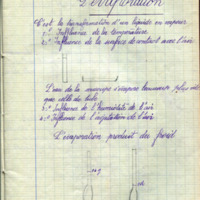 L'évaporation
C'est la transformation d'un liquide en vapeur
1° Influence de la température
2° Influence de la surface de contact avec l'air
L'eau de la soucoupe s'évapore beaucoup plus vite
que celle du tube
3° Influence de l'humidité de l'air
4° Influence de l'agitation de l'air
L'évaporation produit du froid